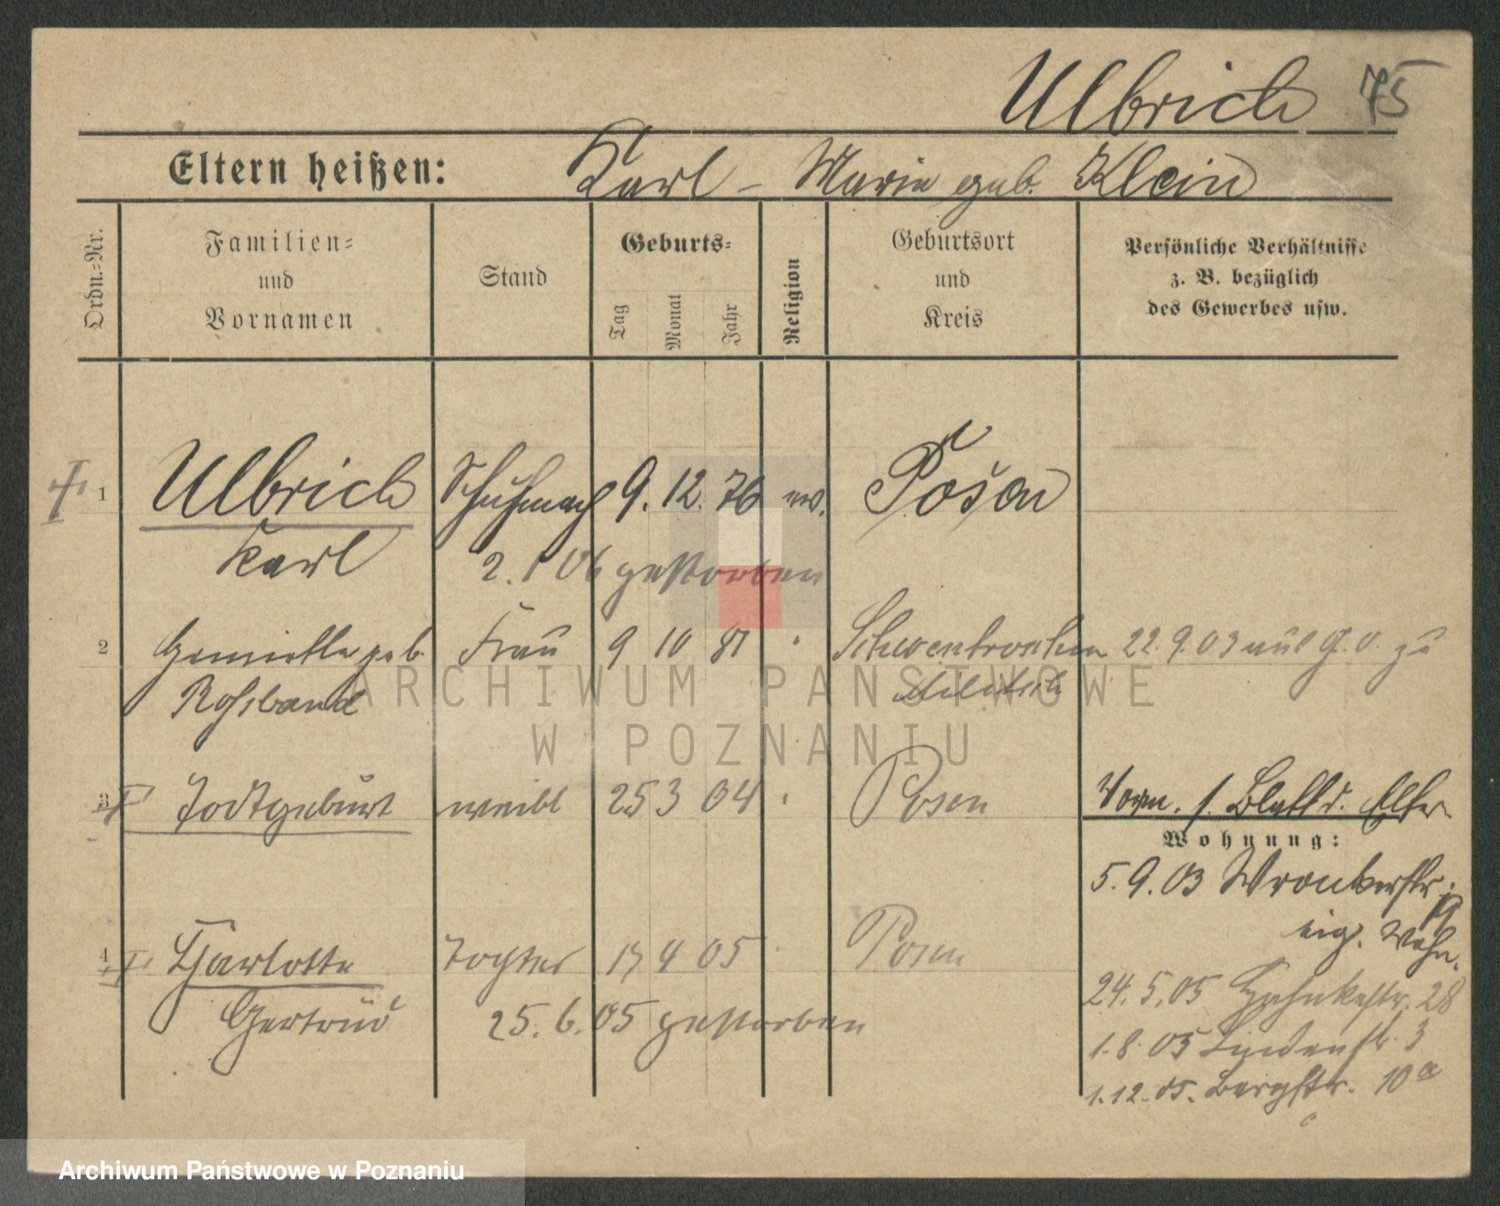 Ulbrich 75
Eltern heißen: Karl – Marie geb. Klein
Ordn.-Nr.
Familien-
und
Vornamen
Stand
Geburts-
Tag
Monat
Jahr
Religion
Geburtsort
und
Kreis
Persönliche Verhältnisse
z. B. bezüglich
des Gewerbes usw.
1 Ulbrich Schuhmach 9. 12. 76 ev. Posen
Karl 2. 1 06 gestorben
2 geb. Frau 9 10 81 " 22. 9. 03 aus G. O. zu
Militsch
ARCHIWUM PAŃSTWOWE
W POZNANIU
3 Todtgeburt weibl 25 3 04 " Posen Vorm. s. Blatt d. Elter
Wohnung:
5. 9. 03 Wronkerstr. 19
eig. Wohn.
4 Charlotte Tochter 17 4 05 Posen
24. 5. 05 28
Gertrud 25. 6. 05 gestorben
1. 8. 05 Lindenstr. 3
1. 12. 05. Bergstr. 10a
Archiwum Państwowe w Poznaniu